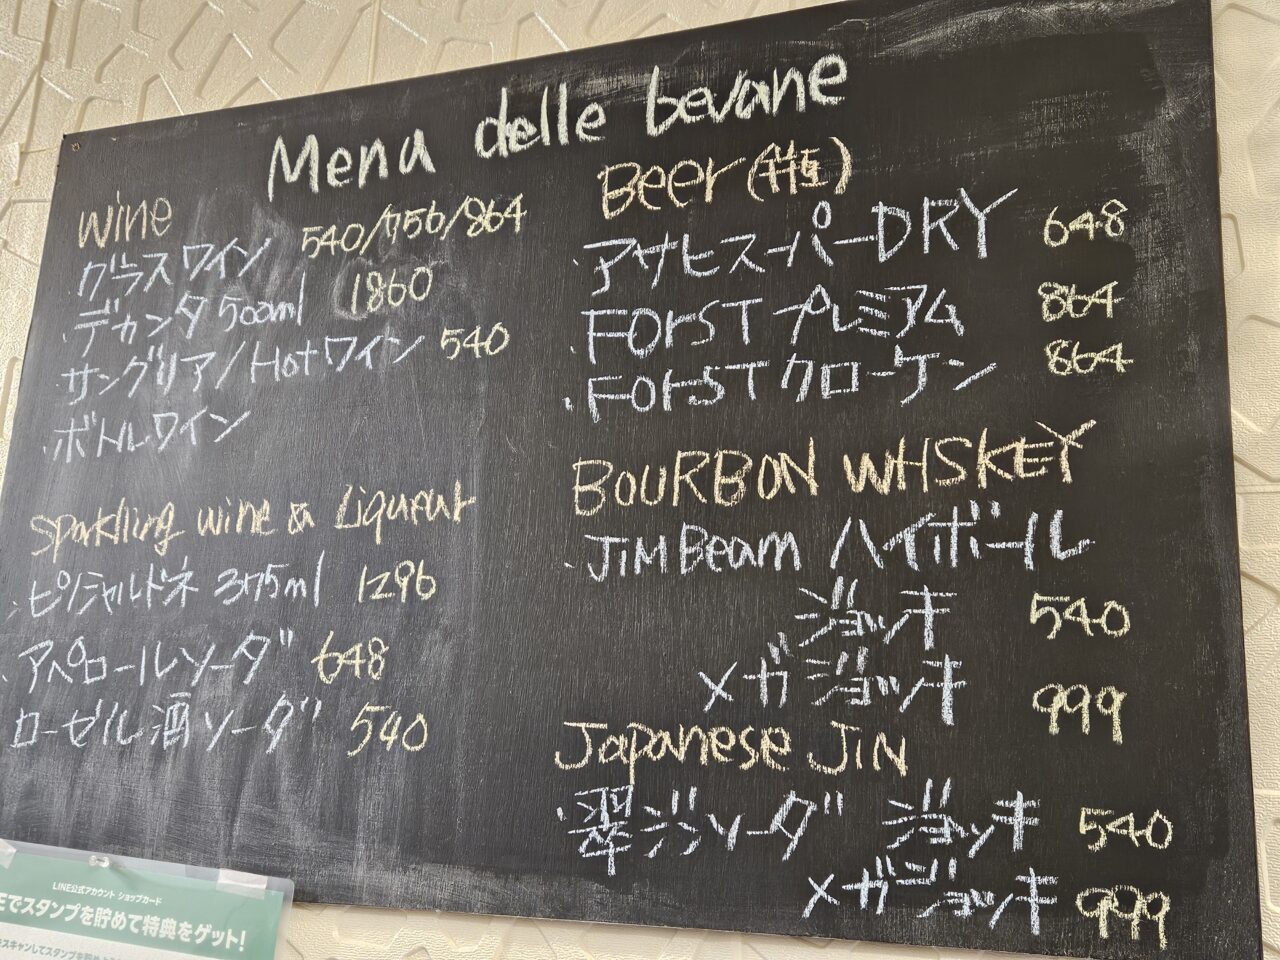 Menu delle bevane
Wine
グラスワイン 540/756/864
・デカンタ 500ml 1860
・サングリア/Hotワイン 540
・ボトルワイン
Sparkling wine & Liqueur
・ピノシャルドネ 375ml 1296
・アペロールソーダ 648
ローゼル酒ソーダ 540
Beer(瓶)
・アサヒスーパーDRY 648
・FORST プレミアム 864
・FORST クローネン 864
BOURBON WHSKEY
・JiM Beam ハイボール
ジョッキ 540
メガジョッキ 999
Japanese JiN
・翠ジンソーダ ジョッキ 540
メガジョッキ 999
LINE公式アカウント ショップカード
Eでスタンプを貯めて特典をゲット!